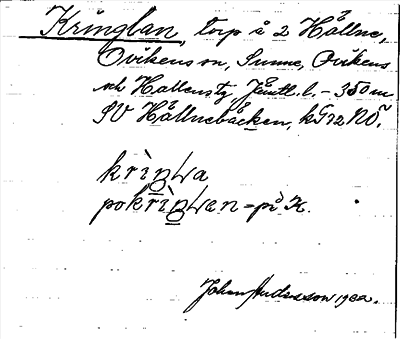 Kringlan, torp å 2 Hållne,
Ovikens sn, Sunne, Ovikens
och Hallens tg Jämtl. l. – 350 m
SV Hållnebäcken, k
krìŋɫa
pokrìŋɫan = på K.
Johan Andersson 1932.